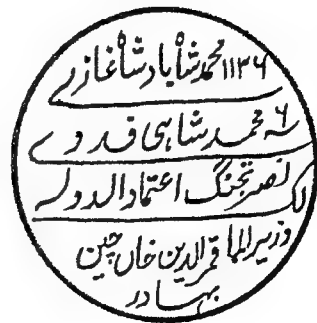 ۱۱۳۶ محمد شاہ بادشاہ غازی
سنہ ۶ محمد شاہی فدوے
نصرتجنگ اعتماد الدولہ
وزیر الما لک قمر الدین خاں چین
بہادر